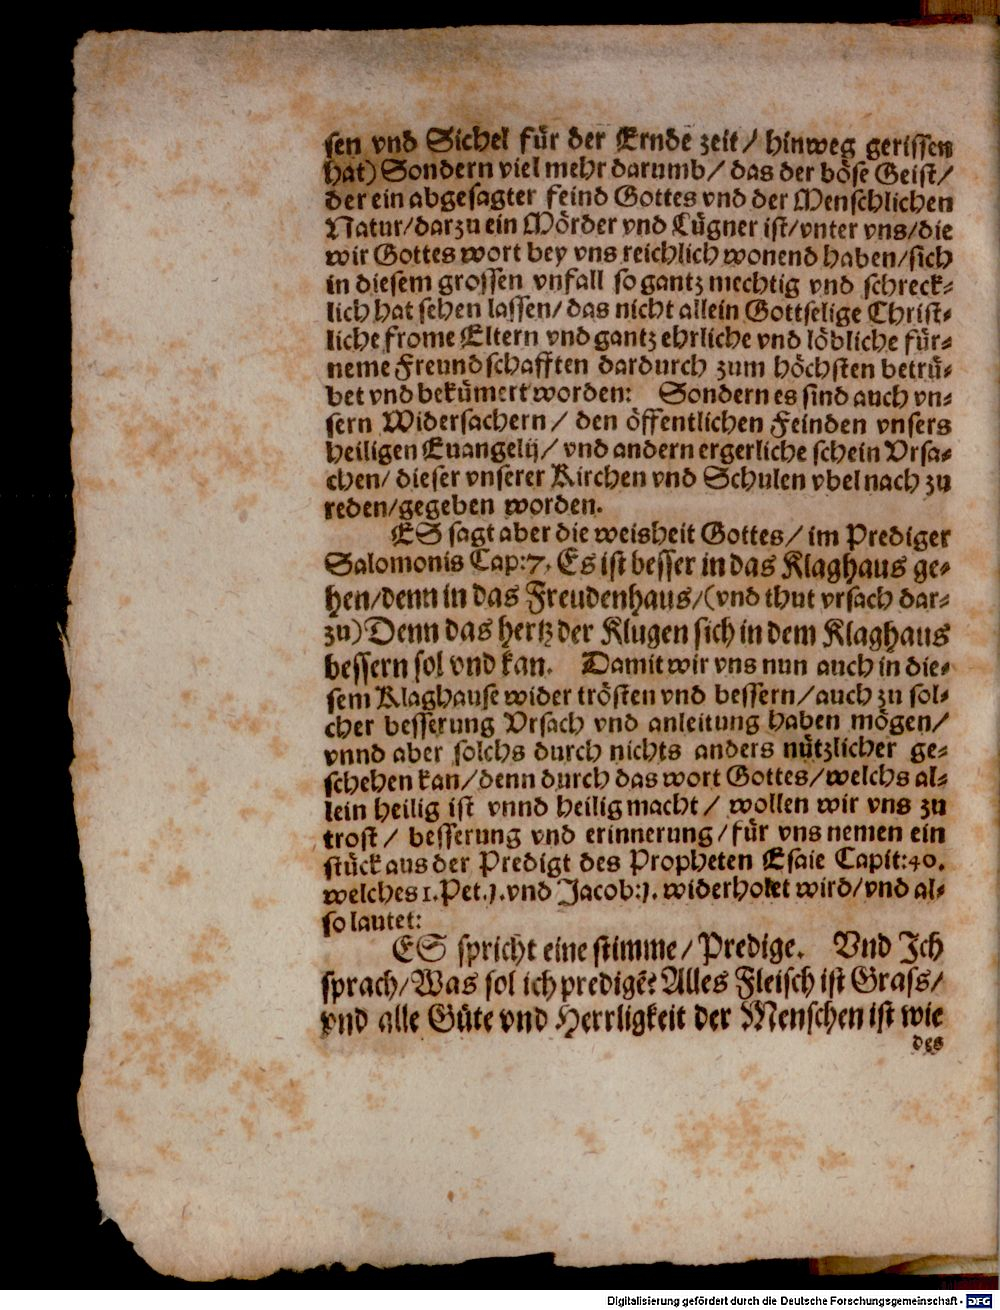 sen vnd Sichel für der Ernde zeit / hinweg gerissen
hat) Sondern viel mehr darumb / das der böse Geist /
der ein abgesagter feind Gottes vnd der Menschlichen
Natur / darzu ein Mörder vnd Lügner ist / vnter vns / die
wir Gottes wort bey vns reichlich wonend haben / sich
in diesem grossen vnfall so gantz mechtig vnd schreck⸗
lich hat sehen lassen / das nicht allein Gottselige Christ⸗
liche frome Eltern vnd gantz ehrliche vnd löbliche für⸗
neme Freundschafften dardurch zum höchsten betrü⸗
bet vnd bekümert worden: Sondern es sind auch vn⸗
sern Widersachern / den öffentlichen Feinden vnsers
heiligen Euangelij / vnd andern ergerliche schein Vrsa⸗
chen / dieser vnserer Kirchen vnd Schulen vbel nach zu
reden / gegeben worden.
ES sagt aber die weisheit Gottes / im Prediger
Salomonis Cap: 7, Es ist besser in das Klaghaus ge⸗
hen / denn in das Freudenhaus / (vnd thut vrsach dar⸗
zu) Denn das hertz der Klugen sich in dem Klaghaus
bessern sol vnd kan. Damit wir vns nun auch in die⸗
sem Klaghause wider trösten vnd bessern / auch zu sol⸗
cher besserung Vrsach vnd anleitung haben mögen /
vnnd aber solchs durch nichts anders nützlicher ge⸗
schehen kan / denn durch das wort Gottes / welchs al⸗
lein heilig ist vnnd heilig macht / wollen wir vns zu
trost / besserung vnd erinnerung / für vns nemen ein
stück aus der Predigt des Propheten Esaie Capit: 40.
welches 1. Pet. 1. vnd Jacob: 1. widerholet wird / vnd al⸗
so lautet:
ES spricht eine stimme / Predige. Vnd Ich
sprach / Was sol ich predigẽ? Alles Fleisch ist Grass /
vnd alle Güte vnd Herrligkeit der Menschen ist wie
des
Digitalisierung gefördert durch die Deutsche Forschungsgemeinschaft - DFG